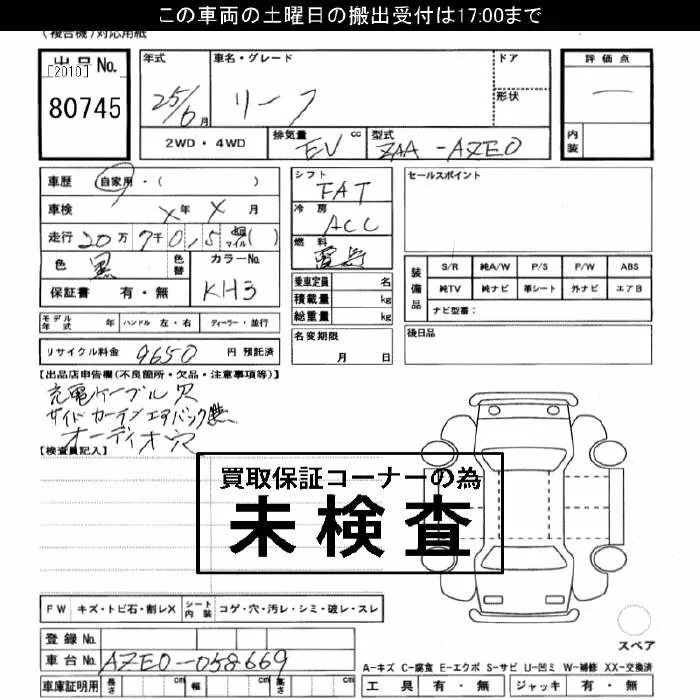 この車両の土曜日の搬出受付は17:00まで
(複合機)対応用紙
出品No. [2010] 80745
年式 25/6月
車名・グレード リーフ
ドア
形状
評価点 一
内装
2WD・4WD
排気量 EV cc
型式 ZAA-AZE0
車歴 自家用・( )
車検 X年 X月
走行 20万 7千 0,5 マイル( )
色 黒 色替
カラーNo. KH3
保証書 有・無
シフト FAT
冷房 ACC
燃料 電気
乗車定員 名
積載量 kg
総重量 kg
セールスポイント
装備品
S/R 純A/W P/S P/W ABS
純TV 純ナビ 革シート 外ナビ エアB
ナビ型番:
モデル年式 年 ハンドル 左・右 ディーラー・並行
名変期限
月 日
後日品
リサイクル料金 9650 円 預託済
【出品店申告欄(不良箇所・欠品・注意事項等)】
充電ケーブル欠
サイドカーテンエアバック無
オーディオ穴
【検査員記入】
買取保証コーナーの為
未検査
FW キズ・トビ石・割レX シート内装 コゲ・穴・汚レ・シミ・破レ・スレ
登録No.
車台No. AZE0-058669
スペア
A-キズ C-腐食 E-エクボ S-サビ U-凹ミ W-補修 XX-交換済
車庫証明用 長さ cm 幅 cm 高さ cm
工具 有・無 ジャッキ 有・無